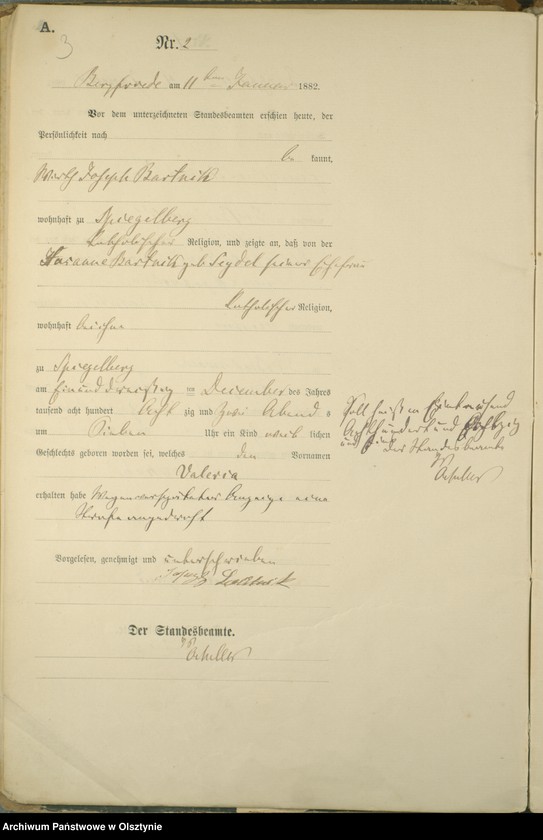 A.
3
Nr. 2
Bergfriede am 11ten Januar 1882.
Vor dem unterzeichneten Standesbeamten erschien heute, der
Persönlichkeit nach
be kannt,
Wirth Joseph Bartnik
wohnhaft zu Spiegelberg
katholischer Religion, und zeigte an, daß von der
Susanne Bartnik geb Seydel seiner Ehefrau
katholischer Religion,
wohnhaft bei ihm
zu Spiegelberg
am ein und dreißig ten December des Jahres
tausend acht hundert acht zig und zwei Abend s
um Sieben Uhr ein Kind weib lichen
Geschlechts geboren worden sei, welches den Vornamen
Valeria
erhalten habe Wegen verspäteter Anzeige eine
Strafe angedroht
Vorgelesen, genehmigt und unterschrieben
Joseph Bartnik
Der Standesbeamte.
Schiller
Soll heißen Eintausend
Achthundert und
und der Standesbeamte
Schiller
Archiwum Państwowe w Olsztynie